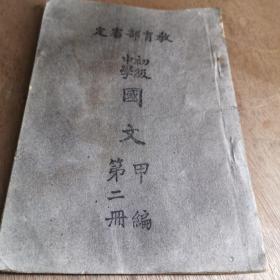 教育部審定
初級
中學
國文
甲編
第二冊